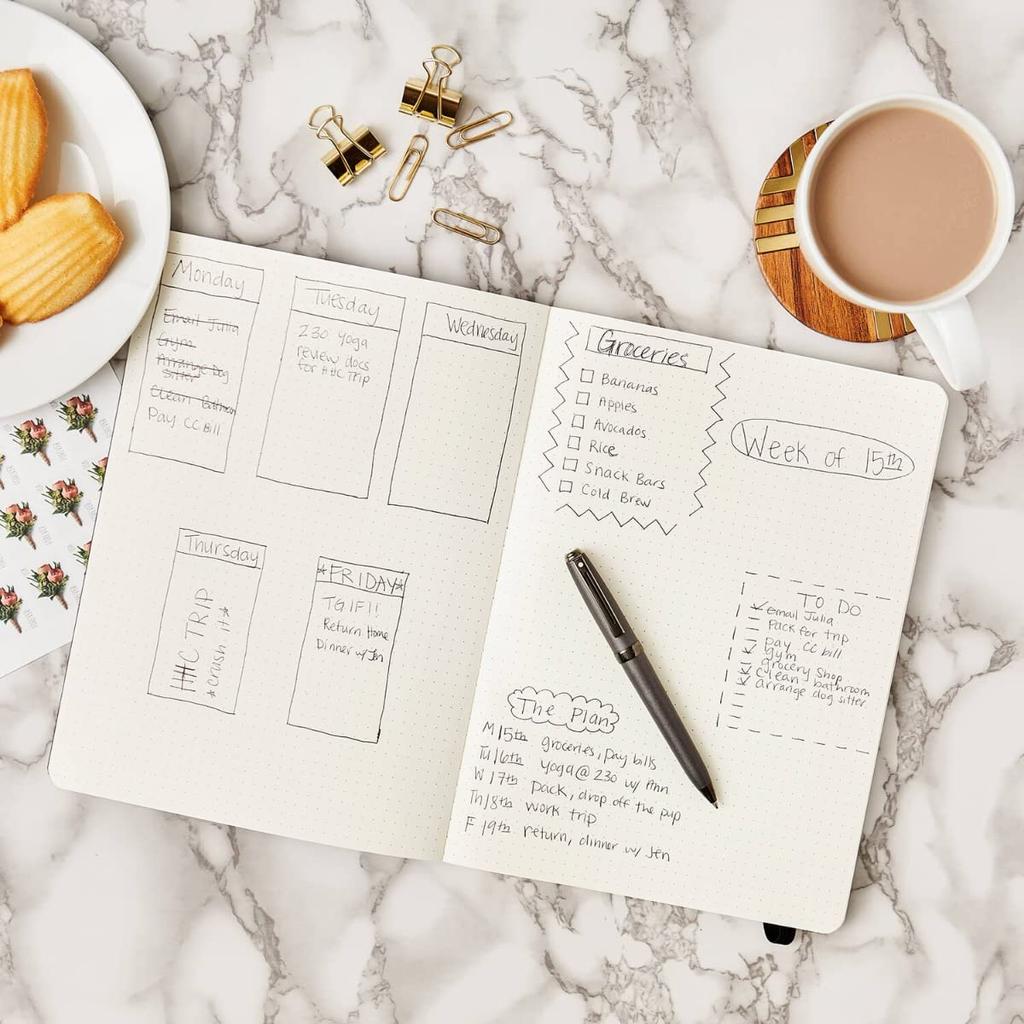 Monday
Email Julia
Gym
Arrange Dog
Sitter
Clean Bathroom
Pay CC Bill
Tuesday
230 Yoga
review docs
for HHC Trip
Wednesday
Thursday
HHC TRIP
*crush it*
*FRIDAY*
TGIF!!
Return Home
Dinner w/ Jen
Groceries
Bananas
Apples
Avocados
Rice
Snack Bars
Cold Brew
Week of 15th
TO DO
email Julia
Pack for trip
pay CC bill
gym
grocery shop
Clean bathroom
arrange dog sitter
The Plan
M 15th groceries, pay bills
Tu 16th yoga @ 230 w/ Ann
W 17th pack, drop off the pup
Th 18th work trip
F 19th return, dinner w/ Jen